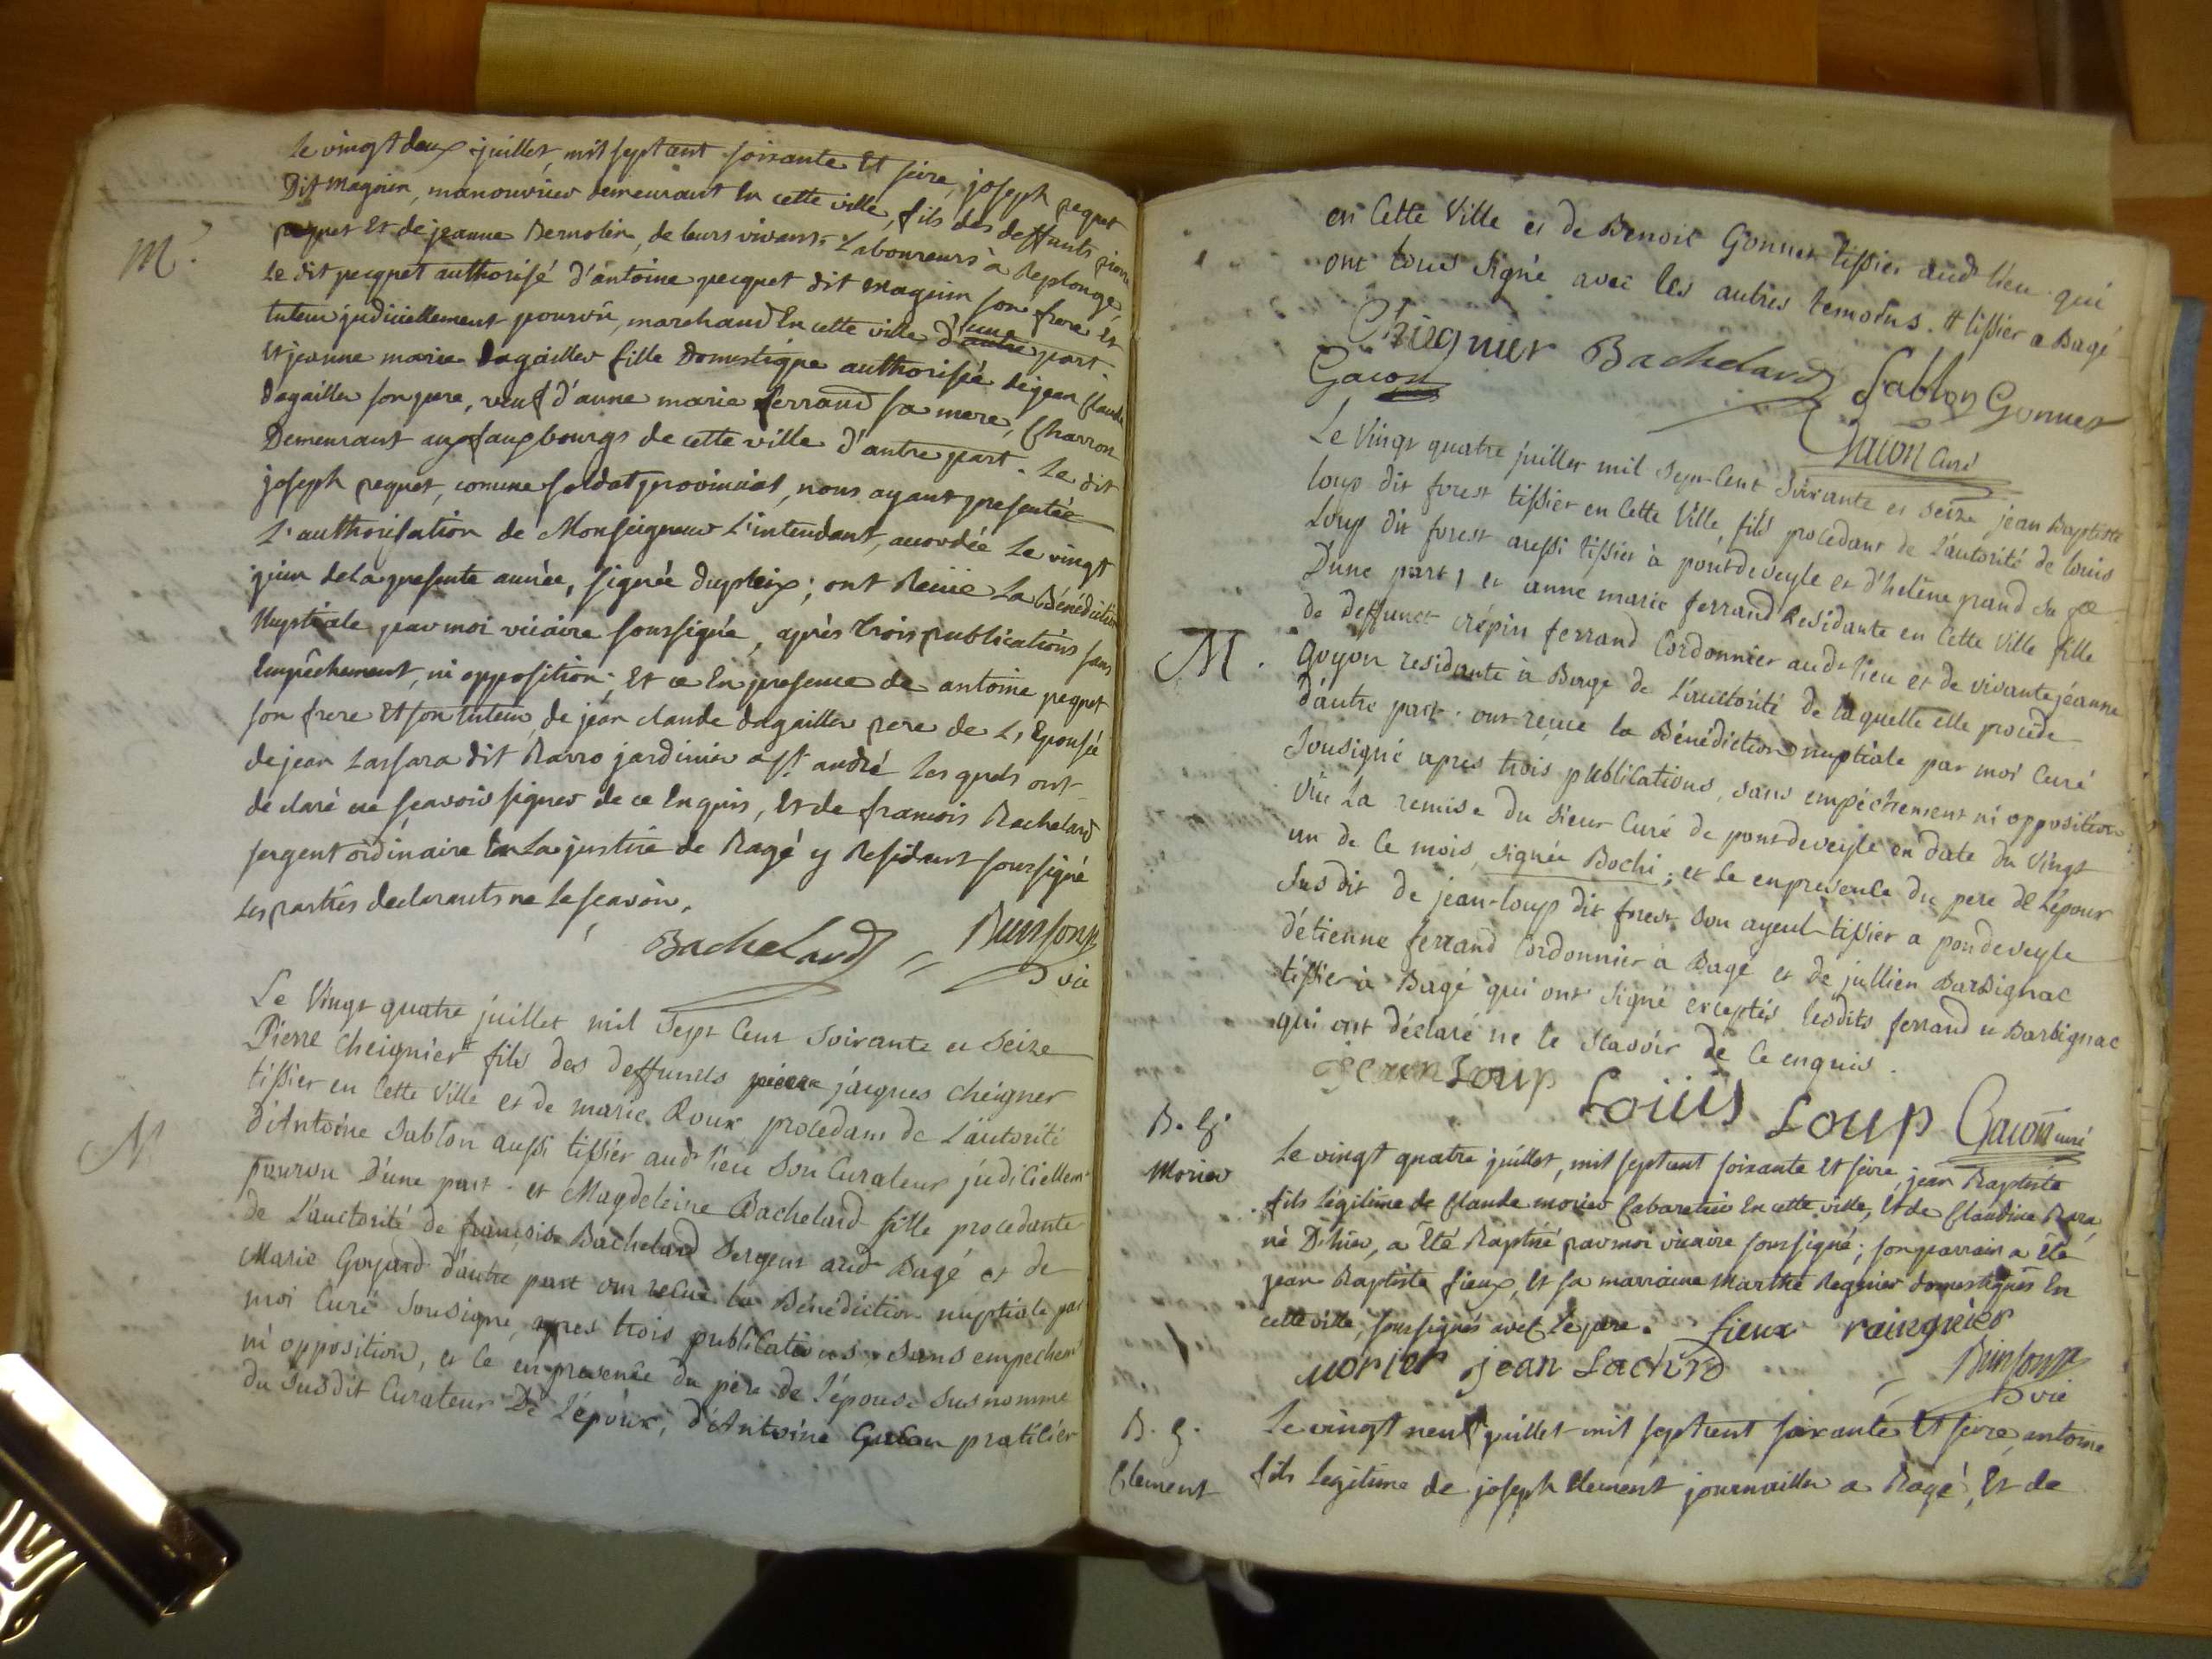 le vingt deux juillet, mil sept cent soixante Et seize, joseph pequet
Dit magnin, manouvrier demeurant En cette ville, fils des deffunts pierre
pequet Et de jeanne Bernolin, de leurs vivants Laboureurs à Replonge,
M.
le dit pecquet authorisé d'antoine pecquet dit magnin son frere Et
tuteur judiciellement pourvû, marchand En cette ville d'une part.
Et jeanne marie dagailler fille Domestique authorisée de jean Claude
dagailler son pere, veuf d'anne marie ferrand sa mere, Charron
Demeurant aux fauxbourgs de cette ville d'autre part. Le dit
joseph pequet, comme soldat provincial, nous ayant presentée
L'authorisation de Monseigneur L'intendant, accordée Le vingt
juin de la presente année, signée dupleix; ont Reçüe La Bénédiction
Nuptiale par moi vicaire soussigné, après trois publications sans
Empêchement, ni opposition; Et ce En presence de antoine pequet
son frere Et son tuteur, de jean claude dagailler pere de L'Epousée
de jean Lassara dit Barro jardinier a st andré Les quels ont
declaré ne sçavoir signer de ce Enquis, Et de francois Bachelard
sergent ordinaire En La justice de Bagé y Residant soussigné
Les parties declarants ne Le sçavoir.
Bachelard Buisson
vic
Le Vingt quatre juillet mil Sept Cent Soixante et Seize
Pierre Cheignier # fils des deffuncts jacques cheigner
tissier en Cette Ville et de marie Roux procedant de L'autorité
M
d'Antoine Sablon aussi tissier aud lieu Son Curateur judiciellemt
pourvu D'une part. et Magdeleine Bachelard fille procedante
de L'auctorité de françois Bachelard Sergent aud Bagé et de
Marie Goyard d'autre part ont recue la Bénédiction nuptiale par
moi Curé Sousigné, apres trois publications, sans empechemt
ni opposition, et ce en presence du père de l'épouse Susnommé
du Susdit Curateur De L'époux, d'Antoine Gacon praticier
en Cette Ville et de Benoit Gonnet tissier aud lieu qui
ont tous signé avec les autres temoins. # tissier a Bagé
Cheignier Bachelard Sablon Gonnet
Gacon
Gacon Curé
Le Vingt quatre juillet mil Sept-Cent Soixante et Seize jean Baptiste
loup dit forest tissier en Cette Ville, fils procedant de L'autorité de louis
Loup dit forest aussi tissier à pontdeveyle et d'heléne pand Sa
D'une part, et anne marie ferrand Residante en Cette Ville fille
de deffunct crépin ferrand Cordonnier aud lieu et de vivante jéanne
M.
Goyon residante à Bage de L'auctorité de laquelle elle procede
d'autre part. ont reçue la Bénédiction nuptiale par moi Curé
Sousigné apres trois publications, sans empéchement ni opposition
Vue La remise du Sieur Curé de pont-deveyle en date du Vingt
un de Ce mois, signée Bochi; et Ce en presence du pere de L'époux
Susdit de jean-loup dit forest Son ayeul tissier a pondeveyle
d'étienne ferrand Cordonnier à Bagé et de jullien Barbignac
tissier à Bagé qui ont Signé exceptés lesdits ferrand et Barbignac
qui ont déclaré ne le Scavoir de Ce enquis.
jean Loup Loüis Loup Gacon curé
B. l.
Morier
Le vingt quatre juillet, mil sept cent soixante Et seize, jean Baptiste
fils Légitime de Claude morier Cabaretier En cette ville, Et de Claudine Bara,
né D'hier, a Eté Baptisé par moi vicaire soussigné; son parrain a Eté
jean Baptiste fieux, Et sa marraine Marthe Regnier domestiques En
cette ville, soussignés avec Le pere. fieux raiegnier
morier jean Lachard Buisson
vic
B. l.
Clement
Le vingt neuf juillet mil sept cent soixante Et seize, antoine
fils Legitime de joseph Clement journailler a Bagé, Et de